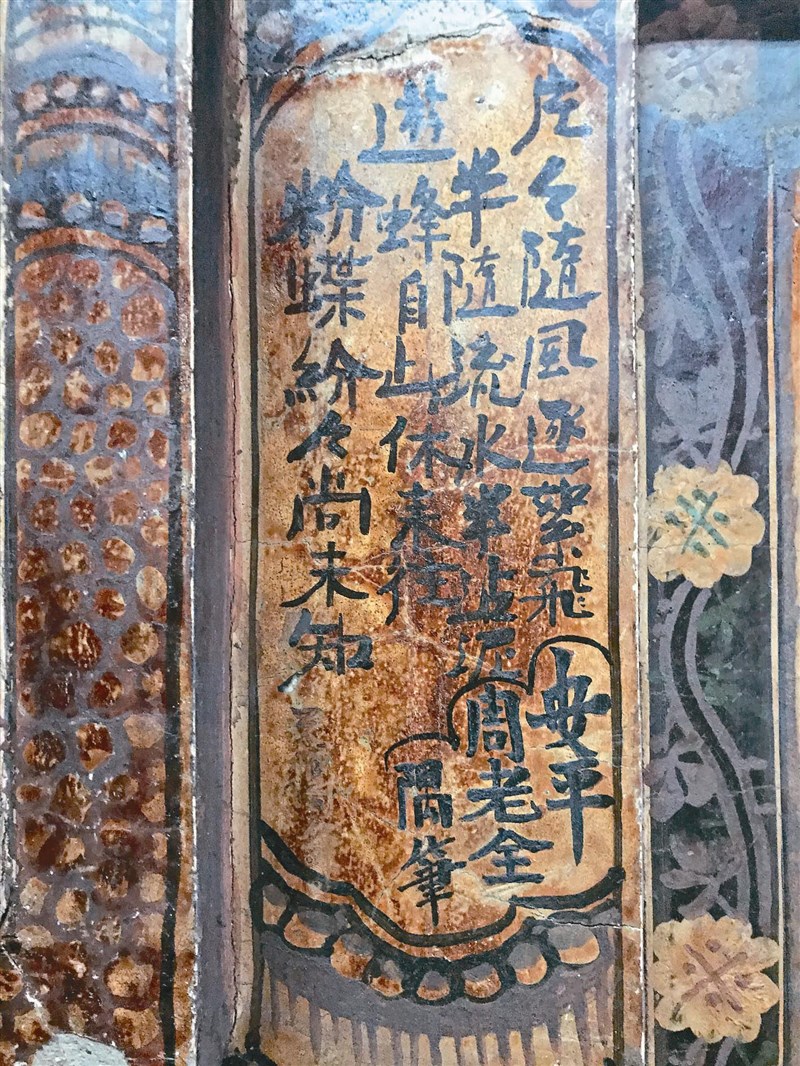 片々隨風逐絮飛
半隨流水半沾泥
蜂自止休来往
粉蝶紛々尚未知
安平
周老全
隅筆